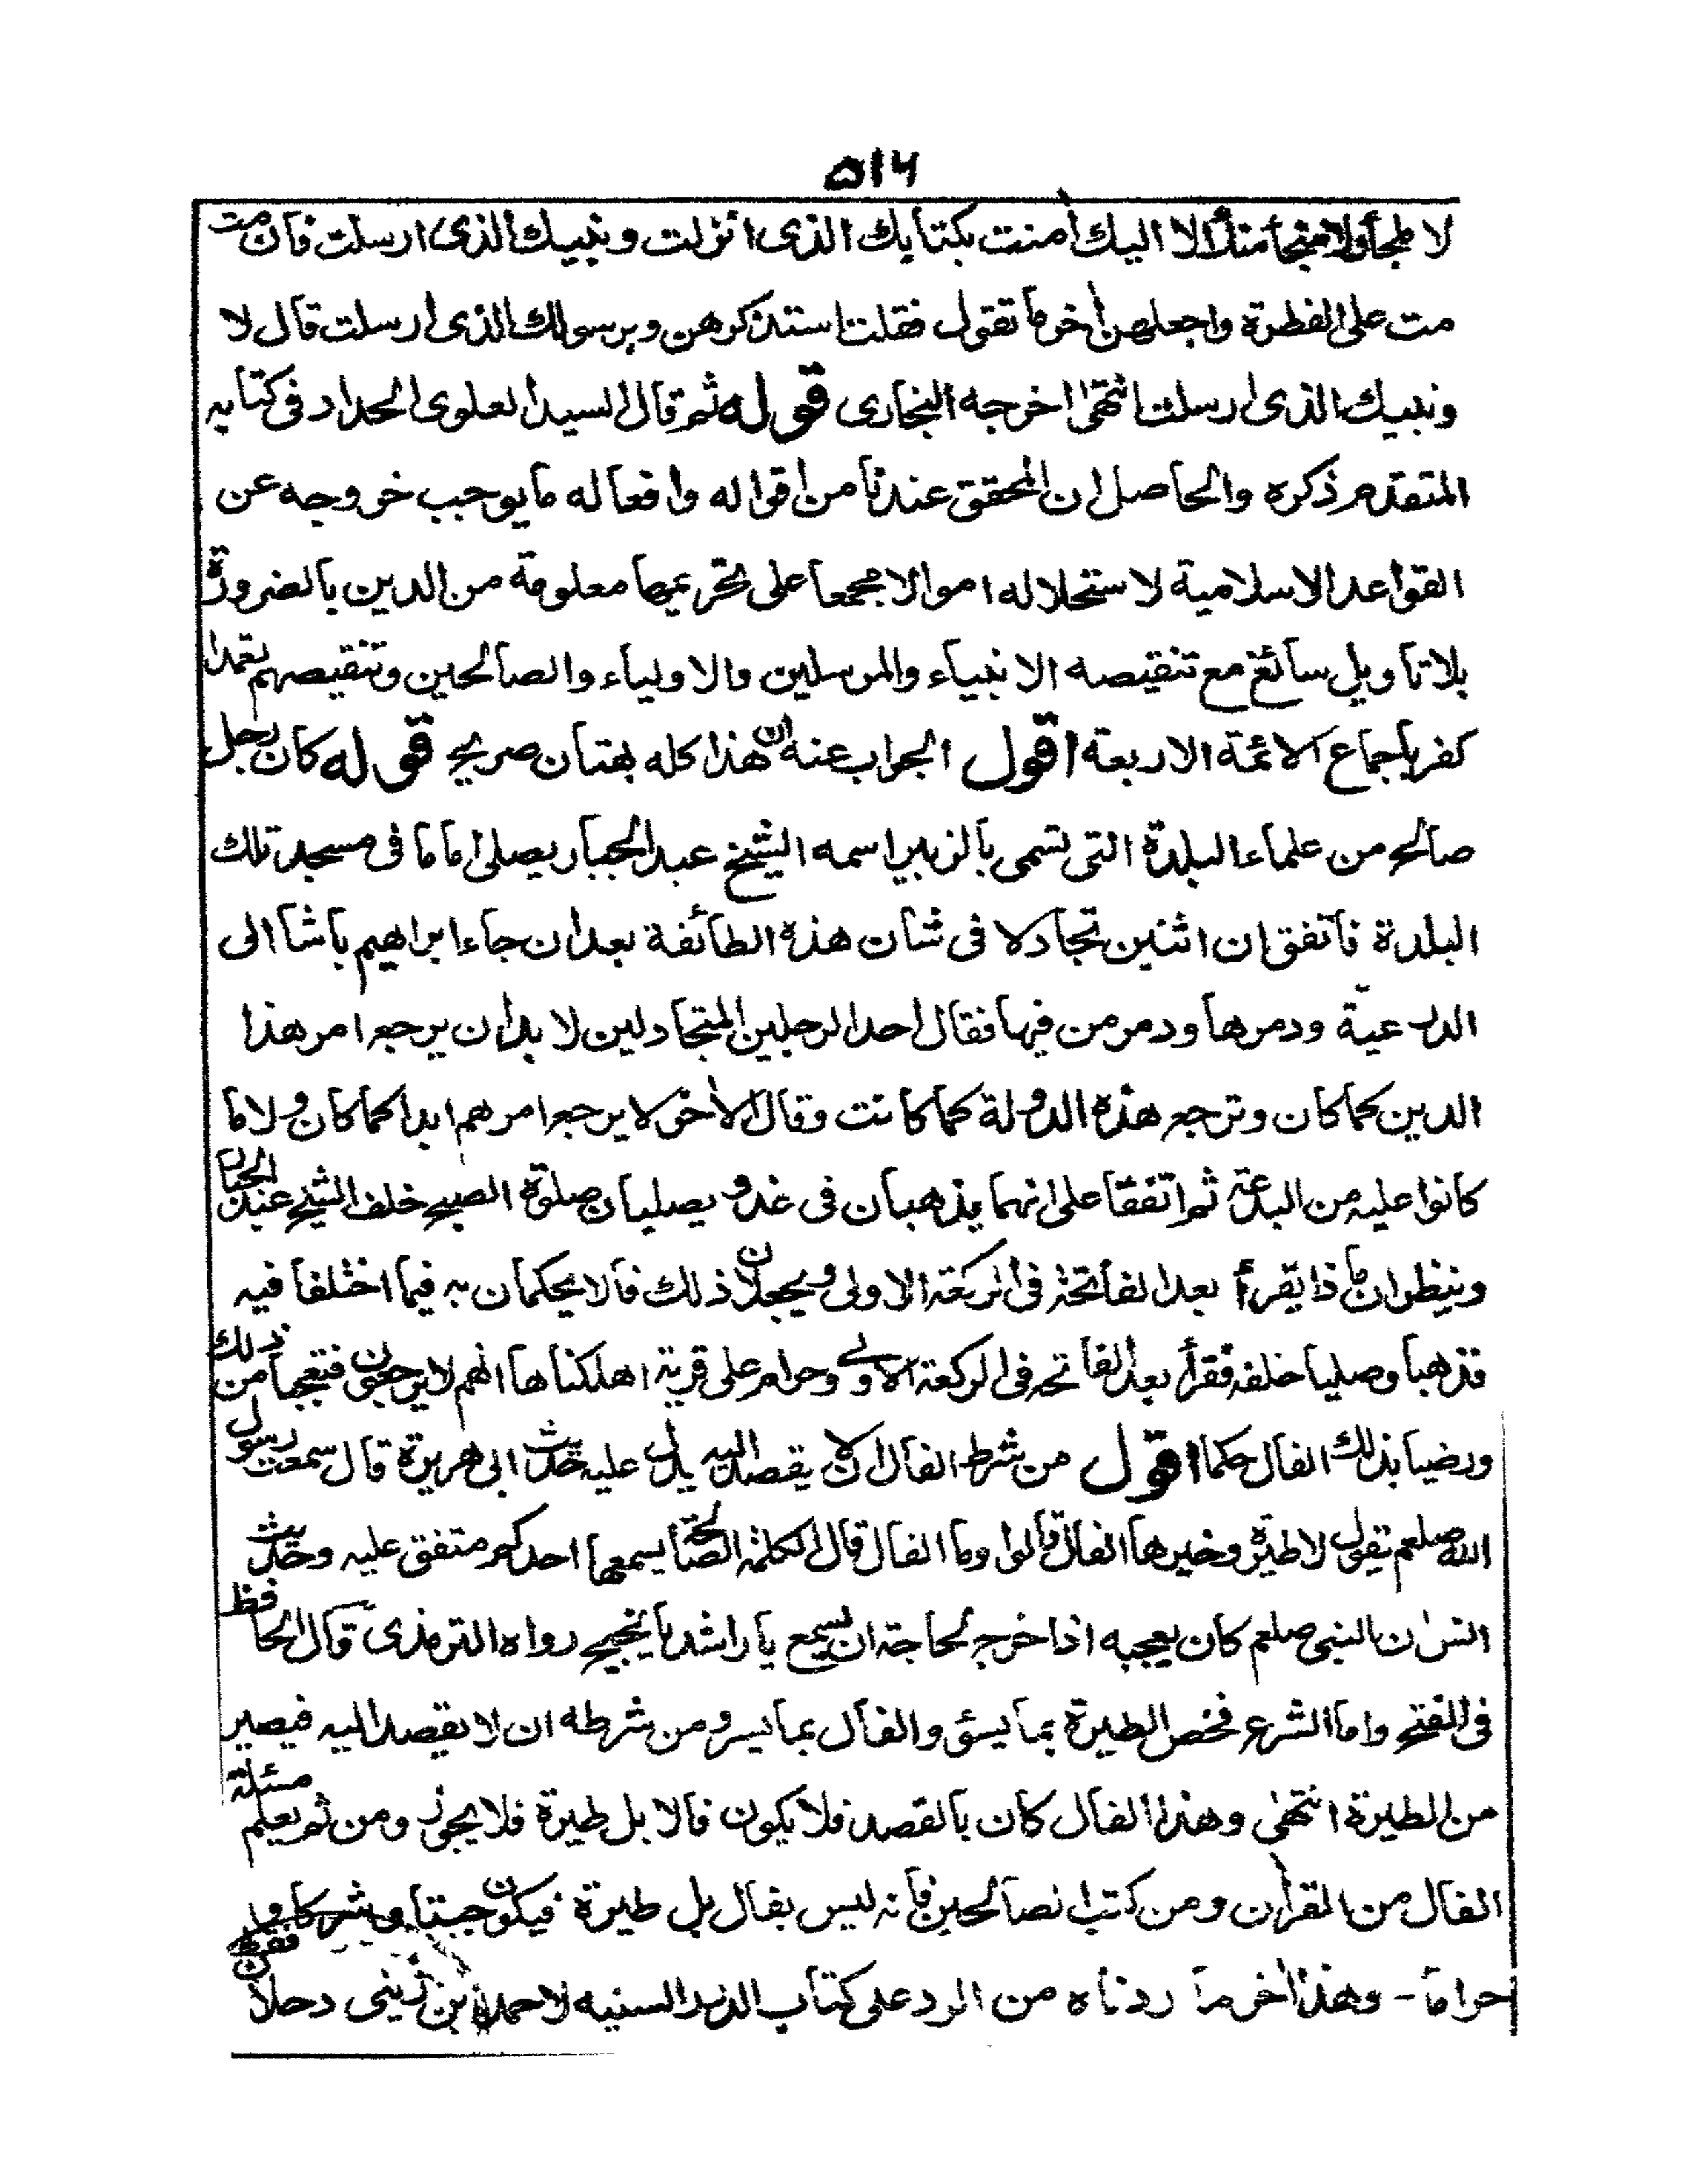 ۵۱۶
لا ملجأ ولا منجأ منك الا اليك أمنت بكتابك الذى انزلت ونبيك الذى ارسلت فان مت
مت على الفطرة واجعلهن أخر ما تقول فقلت استذكرهن وبرسولك الذى ارسلت قال لا
ونبيك الذى ارسلت انتهى اخرجه البخارى قوله ثم قال السيد العلوى الحداد فى كتابه
المتقدم ذكره والحاصل ان المحقق عندنا من اقواله وافعاله ما يوجب خروجه عن
القواعد الاسلامية لاستحلاله اموالا مجمعا على تحريمها معلومة من الدين بالضرورة
بلا تاويل سائغ مع تنقيصه الانبياء والمرسلين والاولياء والصالحين وتنقيصهم تعمدا
كفر باجماع الائمة الاربعة اقول الجواب عنه ان هذا كله بهتان صريح قوله كان رجل
صالح من علماء البلدة التى تسمى بالزبير اسمه الشيخ عبد الجبار يصلى اماما فى مسجد تلك
البلدة فاتفق ان اثنين تجادلا فى شان هذه الطائفة بعد ان جاء ابراهيم باشا الى
الدرعية ودمرها ودمر من فيها فقال احد الرجلين المتجادلين لا بد ان يرجع امر هذا
الدين كما كان وترجع هذه الدولة كما كانت وقال الأخر لا يرجع امرهم ابدا كما كان ولا ما
كانوا عليه من البدعة ثم اتفقا على انهما يذهبان فى غد و يصليان صلوة الصبح خلف الشيخ عبد الجبار
وينظران ما ذا يقرء بعد الفاتحة فى الركعة الاولى ويجعلان ذلك فالا يحكمان به فيما اختلفا فيه
فذهبا وصليا خلفه فقرأ بعد الفاتحه فى الركعة الاولى وحرام على قرية اهلكناها انهم لا يرجعون فتعجبا من ذلك
ورضيا بذلك الفال حكما اقول من شرط الفال ان لا يقصد اليه يدل عليه حديث ابى هريرة قال سمعت رسول
الله صلعم يقول لا طيرة وخيرها الفال قالوا وما الفال قال الكلمة الصالحة يسمعها احدكم متفق عليه وحديث
انس ان النبى صلعم كان يعجبه اذا خرج لحاجة ان يسمع يا راشد يا نجيح رواه الترمذى قال الحافظ
فى الفتح واما الشرع فخص الطيرة بما يسوء والفال بما يسر ومن شرطه ان لا يقصد اليه فيصير
من الطيرة انتهى وهذا الفال كان بالقصد فلا يكون فالا بل طيرة فلا يجوز ومن ثم يعلم مسئلة
الفال من القرأن ومن كتب الصالحين فانه ليس بفال بل طيرة فيكون جبتا وشركا و
حراما - وهذا أخر ما ردناه من الرد على كتاب الدرر السنيه لاحمد بن زينى دحلان